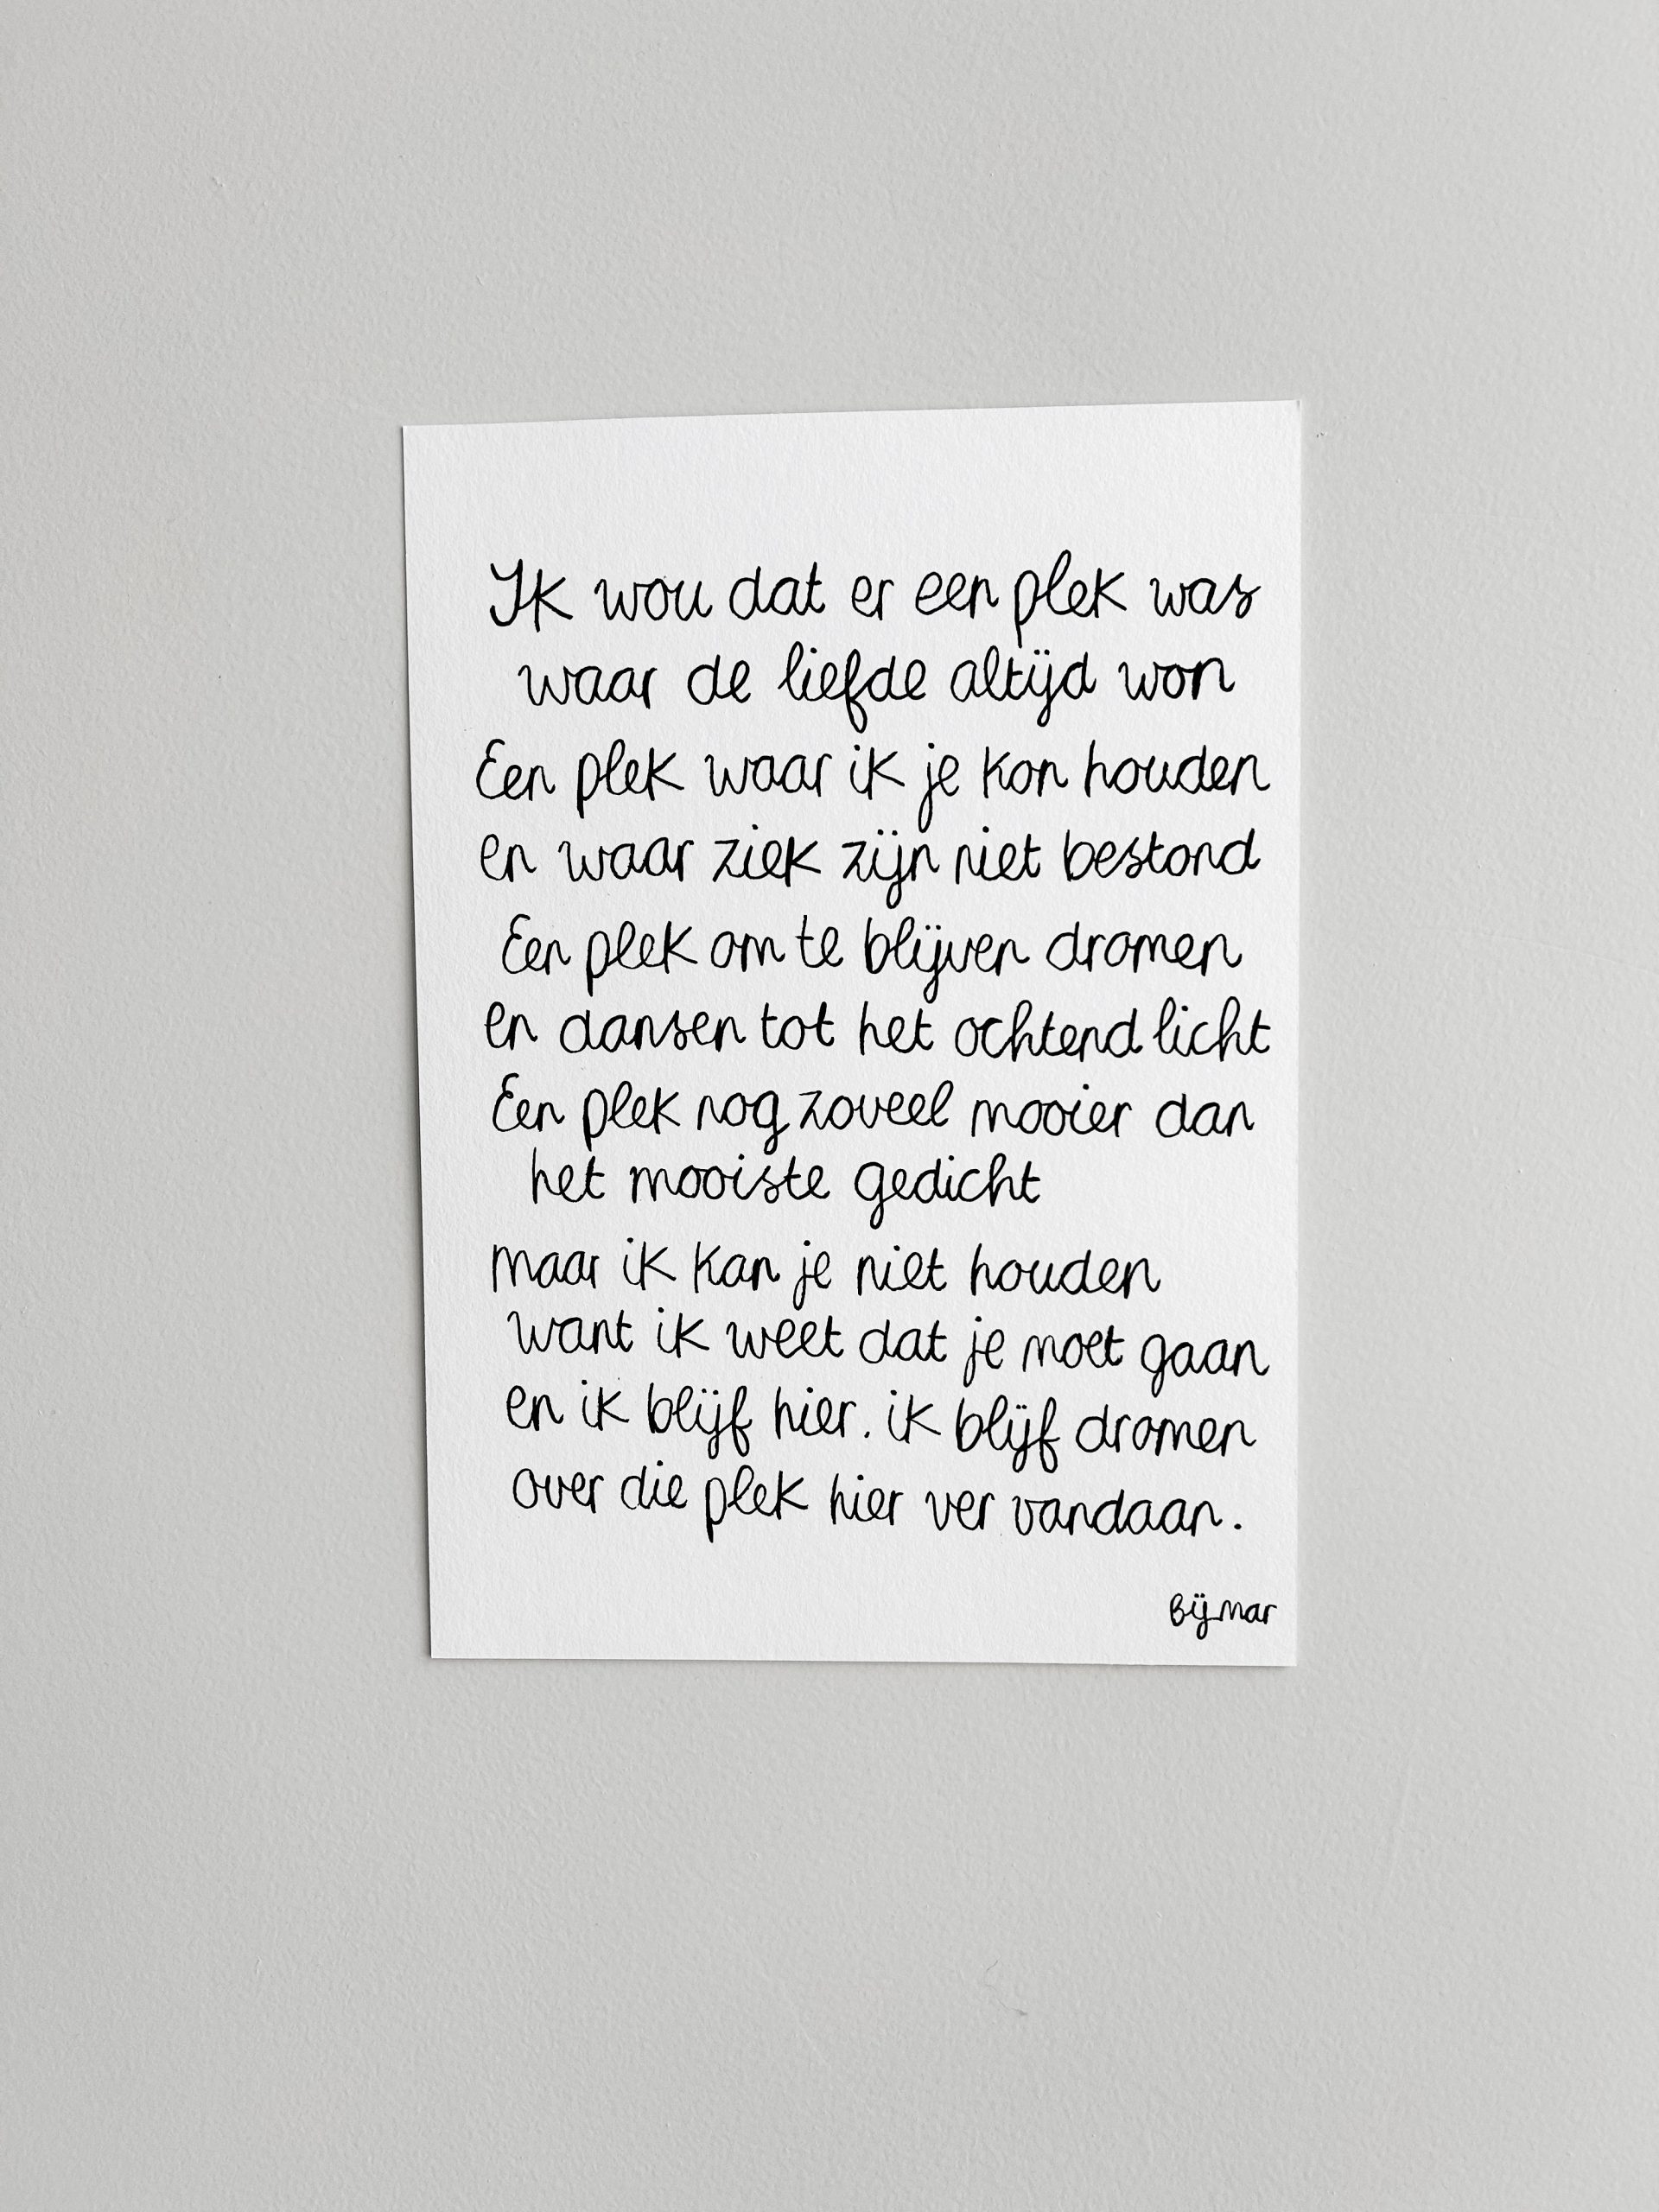 Ik wou dat er een plek was
waar de liefde altijd won
Een plek waar ik je kon houden
en waar ziek zijn niet bestond
Een plek om te blijven dromen
en dansen tot het ochtend licht
Een plek nog zoveel mooier dan
het mooiste gedicht
maar ik kan je niet houden
want ik weet dat je moet gaan
en ik blijf hier. ik blijf dromen
over die plek hier ver vandaan.
Bijmar